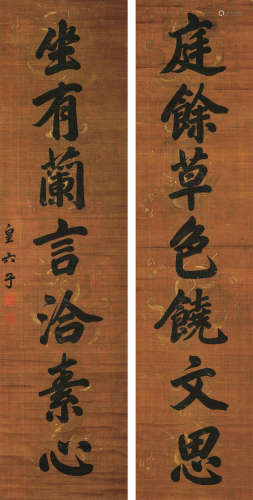 庭餘草色饒文思
坐有蘭言洽素心
皇六子